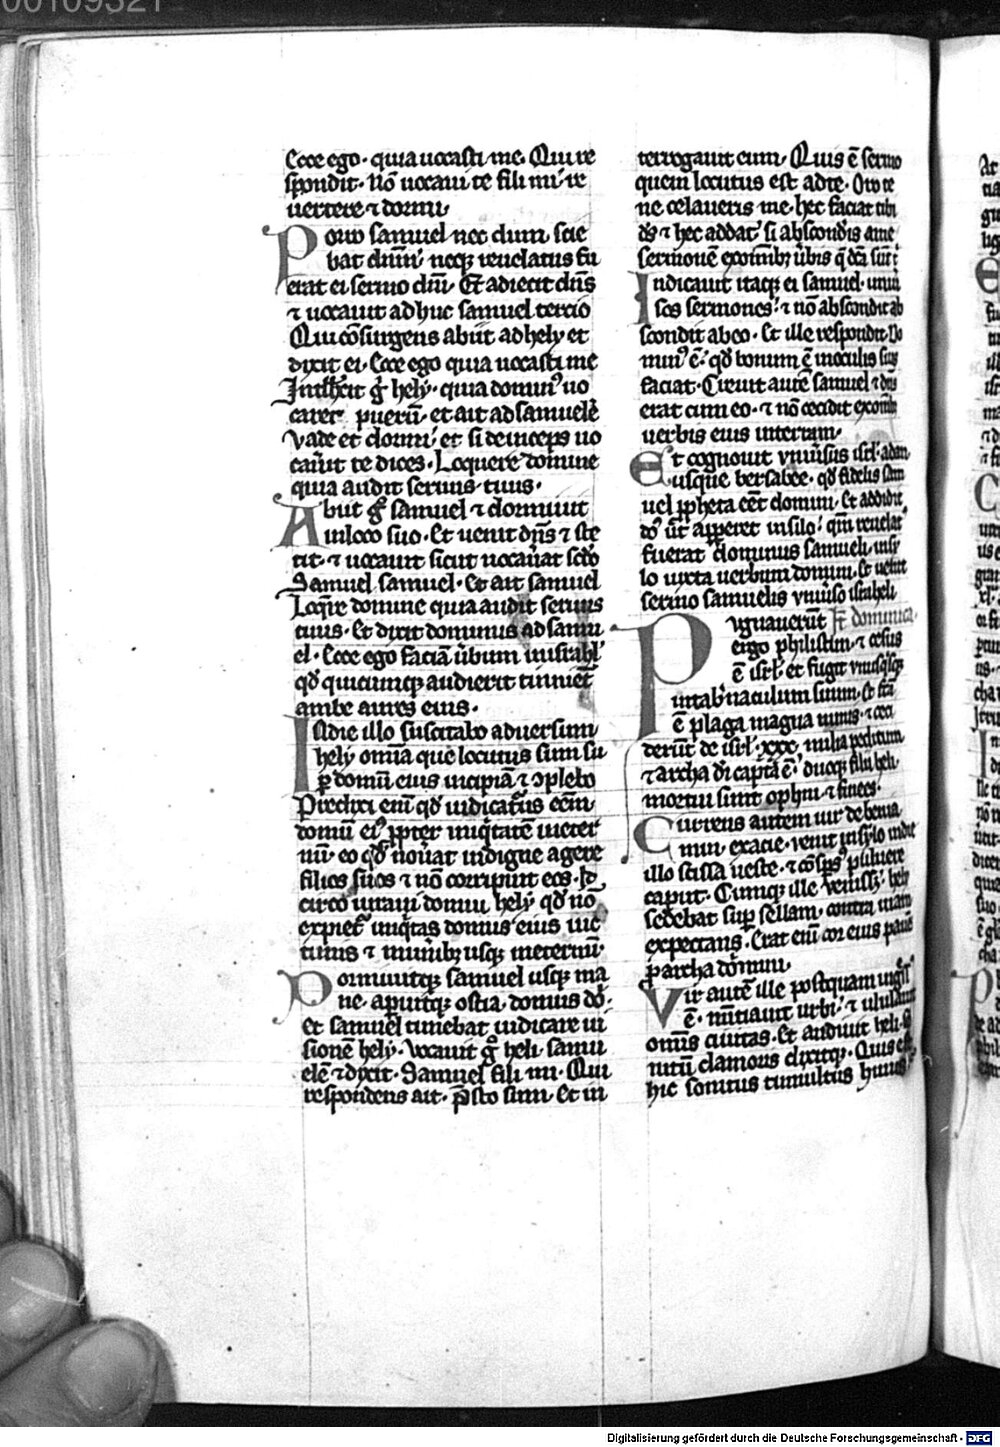 00109321
Ecce ego· quia uocasti me. Qui re
spondit· nō uocaui te fili mi· re
uertere ⁊ dormi·
Porro samuel nec dum scie
bat dn̄m· neqꝫ reuelatus fu
erat ei sermo dn̄i· Et adiecit dn̄s
⁊ uocauit adhuc samuel tercio
Qui cōsurgens abiit ad hely et
dixit ei· Ecce ego quia uocasti me
Intell'exit g̊ hely· quia dominꝰ uo
caret puerū· et ait ad samuelē
Vade et dormi· et si deinceps uo
cau'it te dices· Loquere domine
quia audit seruus tuus·
Abiit g̊ samuel ⁊ dormiuit
in loco suo· Et uenit dn̄s ⁊ ste
tit· ⁊ uocauit sicut uocau'at scd̄o
Samuel samuel· Et ait samuel
Loq̄re domine quia audit seruus
tuus· Et dixit dominus ad samu
el· Ecce ego faciā ūbum in israhl'
qd̄ quicunqꝫ audierit tinniēt
ambe aures eius·
In die illo suscitabo aduersum
hely omīa que locutus sum su
ꝑ domū eius incipiā ⁊ ↄplebo
Predixi enī qd̄ iudicat'us eēm
domū eiꝰ ꝓpter iniq̇tatē in eter
nū· eo qd̄ nou'at indigne agere
filios suos ⁊ nō corripuit eos· Id
circo iuraui domui hely qd̄ nō
expiet᷑ iniq̇tas domus eius uic
timis ⁊ mun'ibꝫ usqꝫ in eternū·
Dormiuitqꝫ samuel usqꝫ ma
ne· apuitqꝫ ostia· domus dō·
et samuel timebat indicare ui
sionē hely· Vocauit g̊ heli· samu
elē ⁊ dixit· Samuel fili mi· Qui
respondens ait· p̄sto sum· Et in
terrogauit eum· Quis ē sermo
quem locutus est ad te· Oro te
ne celaueris me· hec faciat tibi
ds̄ ⁊ hec addat· si abscond'is a me
sermonē ex omībꝫ ūbis q̄ dc̄a sunt t'
Indicauit itaqꝫ ei samuel· uniu'
sos sermones· ⁊ nō abscondit ab
scondit ab eo· Et ille respondit· Do
minꝰ ē· qd̄ bonum ē in oculis suis
faciat· Creuit autē samuel ⁊ dn̄s
erat cum eo· ⁊ nō cecidit ex omībꝫ
uerbis eius in terram·
Et cognouit vniu'sus isrl'· a dan·
usque bersabee· qd̄ fidelis sam
uel ꝓpheta eēt domini· Et addidit
dn̄s ūt apꝑeret in silo· qm̄ reuelatꝰ
fuerat dominus samueli· in sy
lo iuxta uerbum domini· Et uenit
sermo samuelis vniu'so israheli·
Pugnauerūt dominica
ergo philistim· ⁊ cesus
ē isrl'· et fugit vnusq̇sqꝫ
in tab'naculum suum· Et fc̄a
ē plaga magna nimis· ⁊ ceci
derūt de isrl'· xxx· milia peditum
⁊ archa dī capta ē· duoqꝫ filii heli·
mortui sunt ophni ⁊ finees·
Currens autem uir de benia
min· ex acie· venit in sylo in die
illo scissa ueste· ⁊ cōspsꝰ puluere
caput· Cumqꝫ ille venissꝫ· hely
sedebat sup sellam· contra uiam
expectans· Erat enī cor eius pauēs
ꝑ archa dōmini·
Vir autē ille postquam ingssꝰ
ē· nūtiauit urbi· ⁊ ululauit
omīs ciuitas· Et audiuit heli· so
nitū clamoris dixitqꝫ· Quis est
hic sonitus tumultus huius
Digitalisierung gefördert durch die Deutsche Forschungsgemeinschaft - DFG